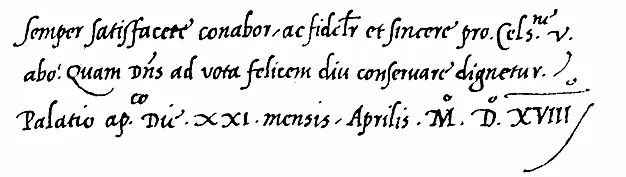 semper satisfacere conabor, ac fidelr et sincere pro. Cels.ne v.
abo: Quam Dns ad vota felicem diu conservare dignetur.
Palatio apco. Die. XXI. mensis, Aprilis. Mo. Do. XVIII